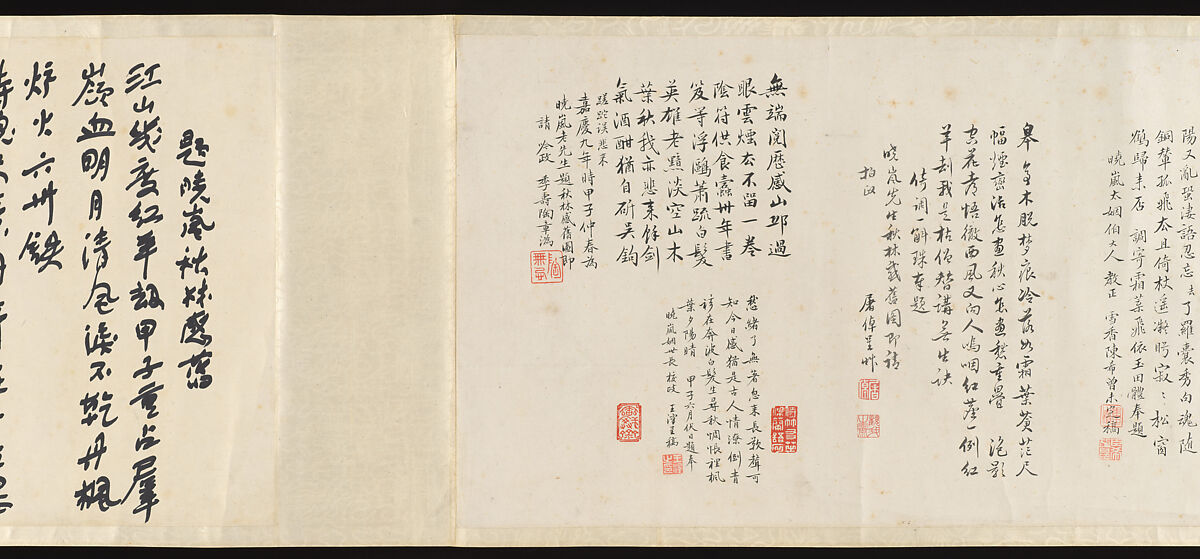 陽又亂蛩淒語忍忘去了羅囊秀句魂隨
銅輦孤飛太且倚杖遙凝眄寂〻松窗
鶴歸未否 調寄霜葉飛依玉田體奉題
曉嵐太姻伯大人 教正 雪香陳希曾未定稿
木脫梦痕冷落如霜葉黃茫尺
幅煙巒活怎畫秋心怎畫愁重疊 泡影
空花老悟徹西風又向人嗚咽紅塵一例紅
羊刦我是枯僧替講無生訣
倚調一斛珠奉題
曉嵐先生秋林感舊圖即請
拍政
屠倬呈艸
無端閱歷感山邱過
眼雲煙去不留一卷
陰符供食蠹卅年書
笈等浮鷗蕭疏白髮
英雄老黯淡空山木
葉秋我亦悲來餘劍
氣酒酣猶自斫吳鉤
蹉跎誤悲來
嘉慶九年時甲子仲春為
曉嵐老先生題秋林感舊圖即
請 冷政 季壽陶章溈
愁緒了無著忽來長歌聲可
知今日感猶是古人情潦倒青
衫在奔波白髮生尋秋惆悵裡楓
葉夕陽晴 甲子六月伏日題奉
曉嵐姻世長 校政 王澤呈稿
題曉嵐秋林感舊
江山幾度紅羊劫甲子重占羣
嶺血明月清風淚不乾丹楓
炉火六州鐵